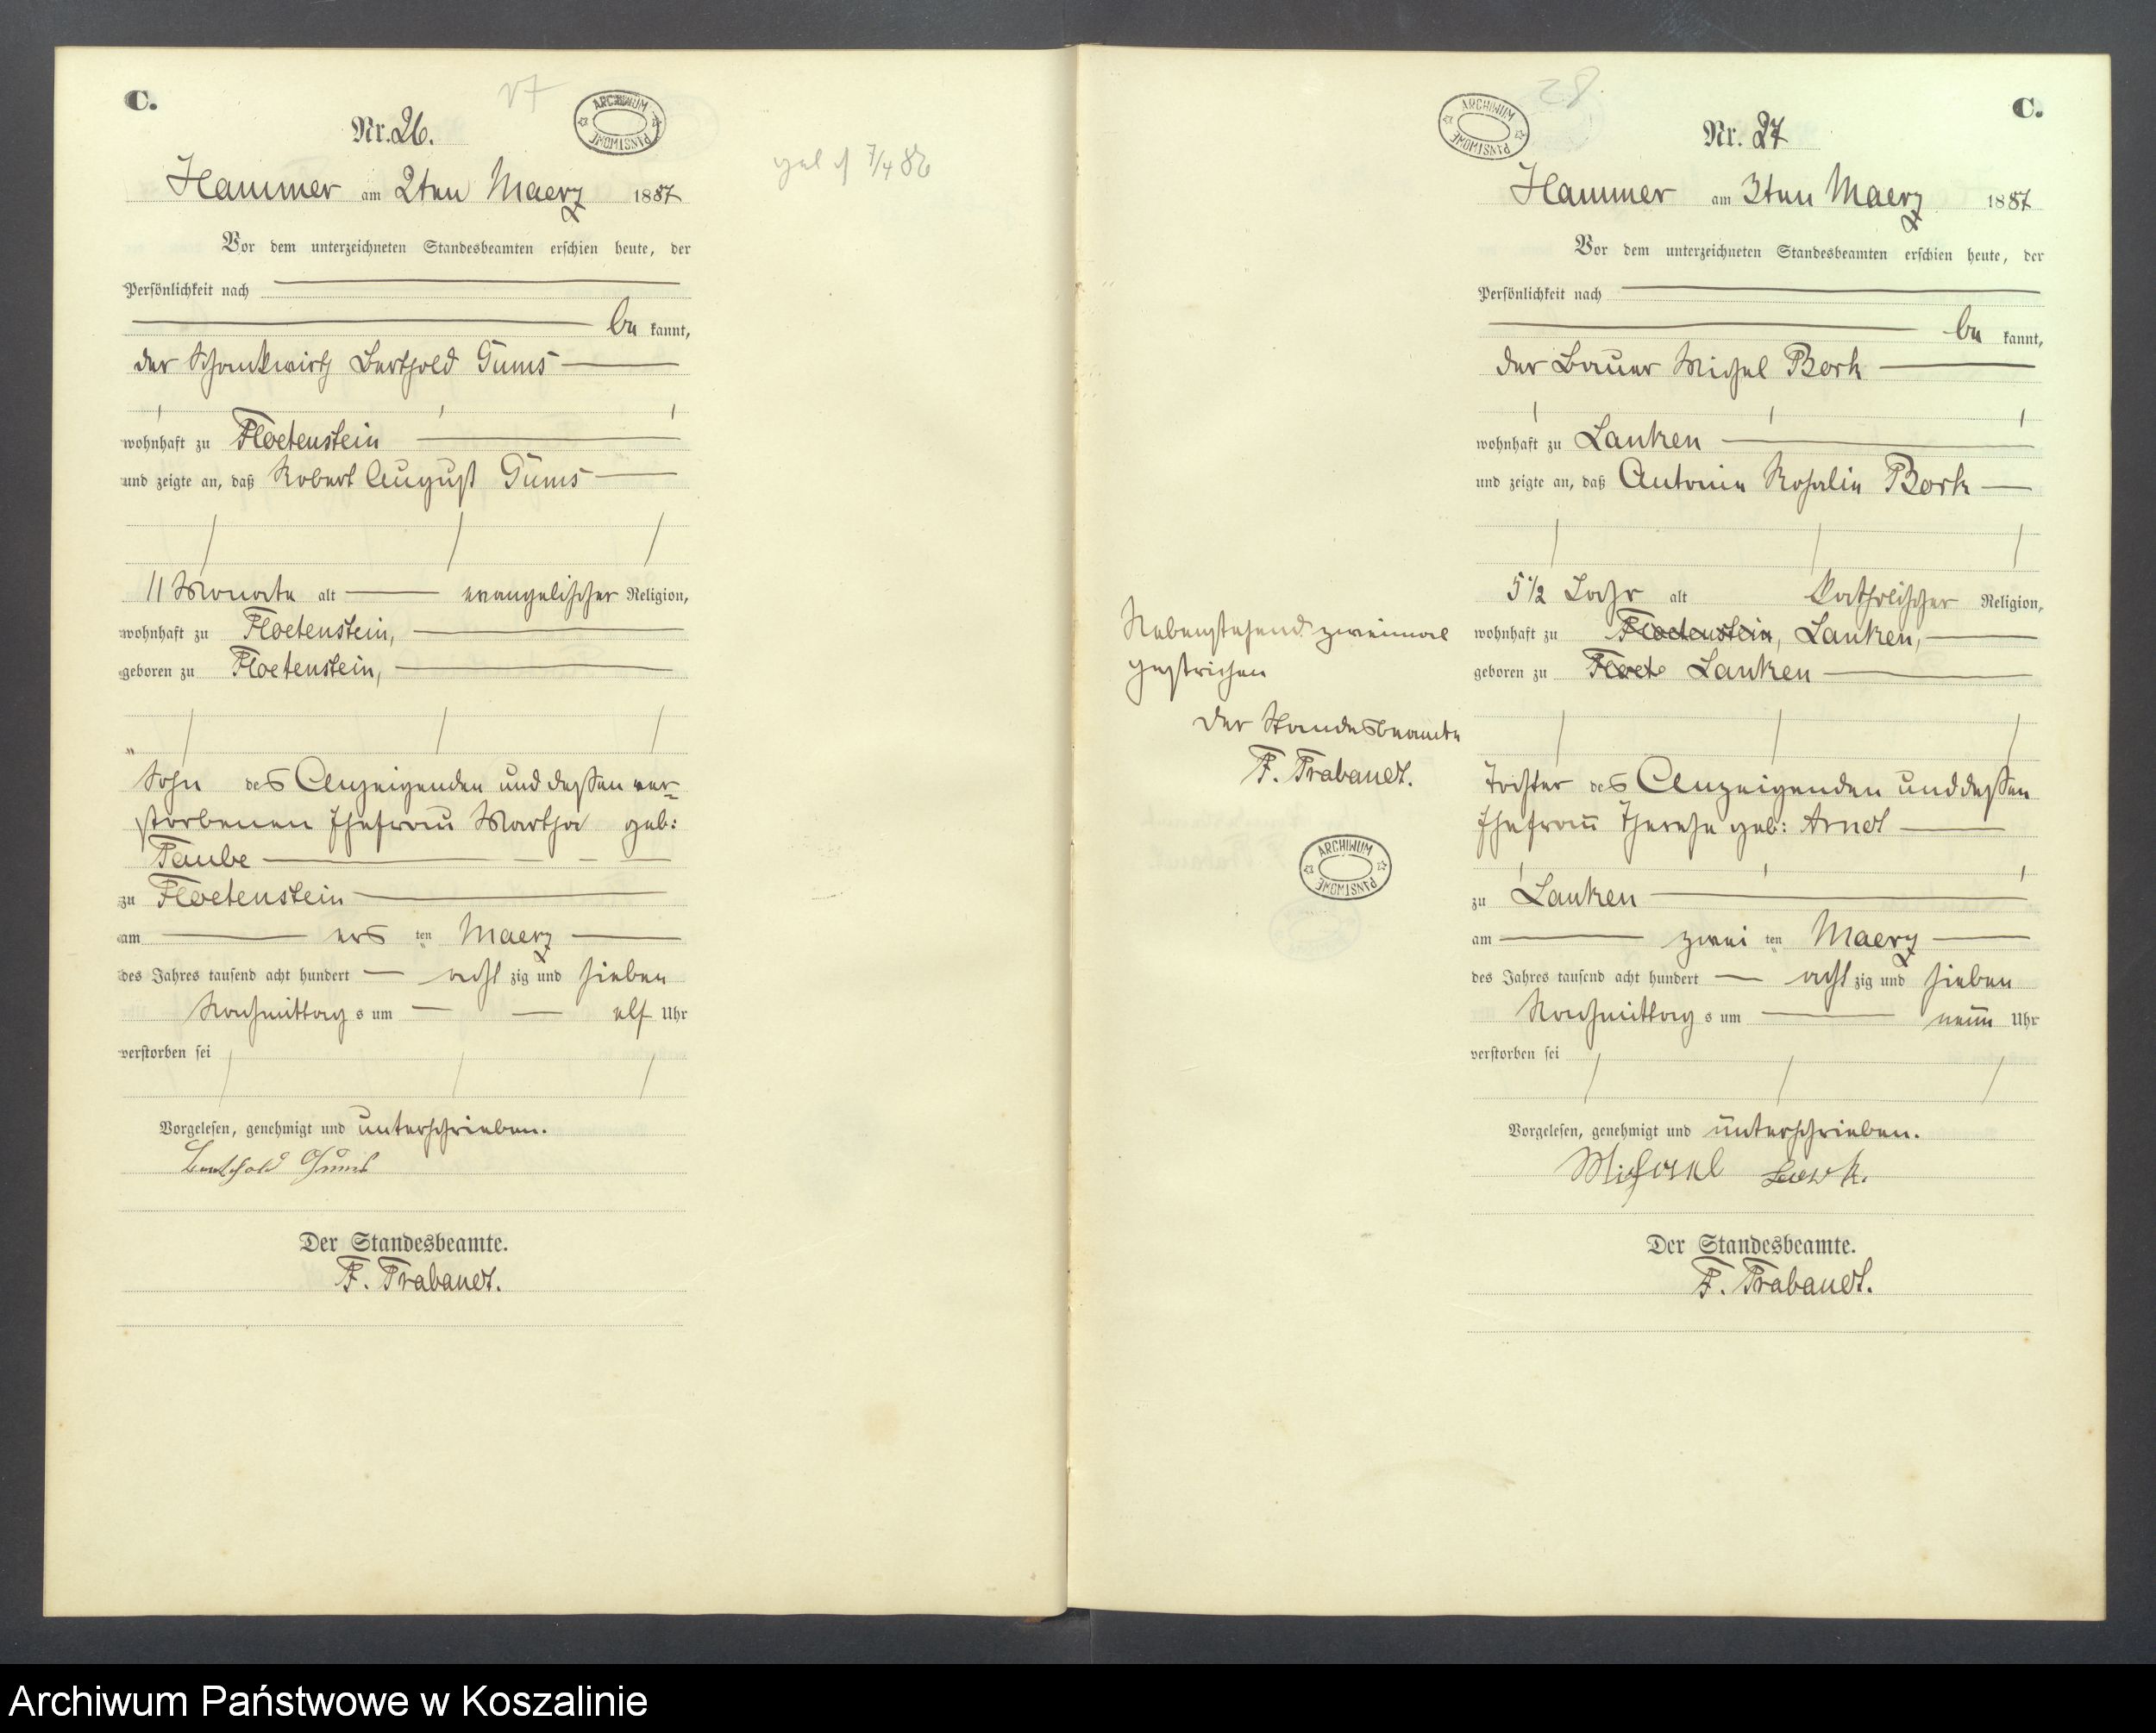 C.
Nr. 26.
ARCHIWUM PAŃSTWOWE
Hammer am 2ten Maerz 1887
Vor dem unterzeichneten Standesbeamten erschien heute, der
Persönlichkeit nach
be kannt,
der Schankwirth Berthold Gums
wohnhaft zu Floetenstein
und zeigte an, daß Robert August Gums
11 Monate alt evangelischer Religion,
wohnhaft zu Floetenstein,
geboren zu Floetenstein,
Sohn des Anzeigenden und dessen ver-
storbenen Ehefrau Martha geb:
Taube
zu Floetenstein
am ers ten Maerz
des Jahres tausend acht hundert acht zig und sieben
Nachmittag s um elf Uhr
verstorben sei
Vorgelesen, genehmigt und unterschrieben.
Berthold Gums
Der Standesbeamte.
F. Trabandt.
7/4 86
28
ARCHIWUM PAŃSTWOWE
C.
Nr. 27
Hammer am 3ten Maerz 1887
Vor dem unterzeichneten Standesbeamten erschien heute, der
Persönlichkeit nach
be kannt,
der Bauer Michel Bork
wohnhaft zu Lanken
und zeigte an, daß Antonie Rosalie Bork
5 1/2 Jahr alt katholischer Religion,
wohnhaft zu Floetenstein, Lanken,
geboren zu Floet Lanken
Nebenstehend zweimal
gestrichen
Der Standesbeamte
F. Trabandt.
ARCHIWUM PAŃSTWOWE
Tochter des Anzeigenden und dessen
Ehefrau Therese geb: Arndt
zu Lanken
am zwei ten Maerz
des Jahres tausend acht hundert acht zig und sieben
Nachmittag s um neun Uhr
verstorben sei
Vorgelesen, genehmigt und unterschrieben.
Michael Bork.
Der Standesbeamte.
F. Trabandt.
Archiwum Państwowe w Koszalinie